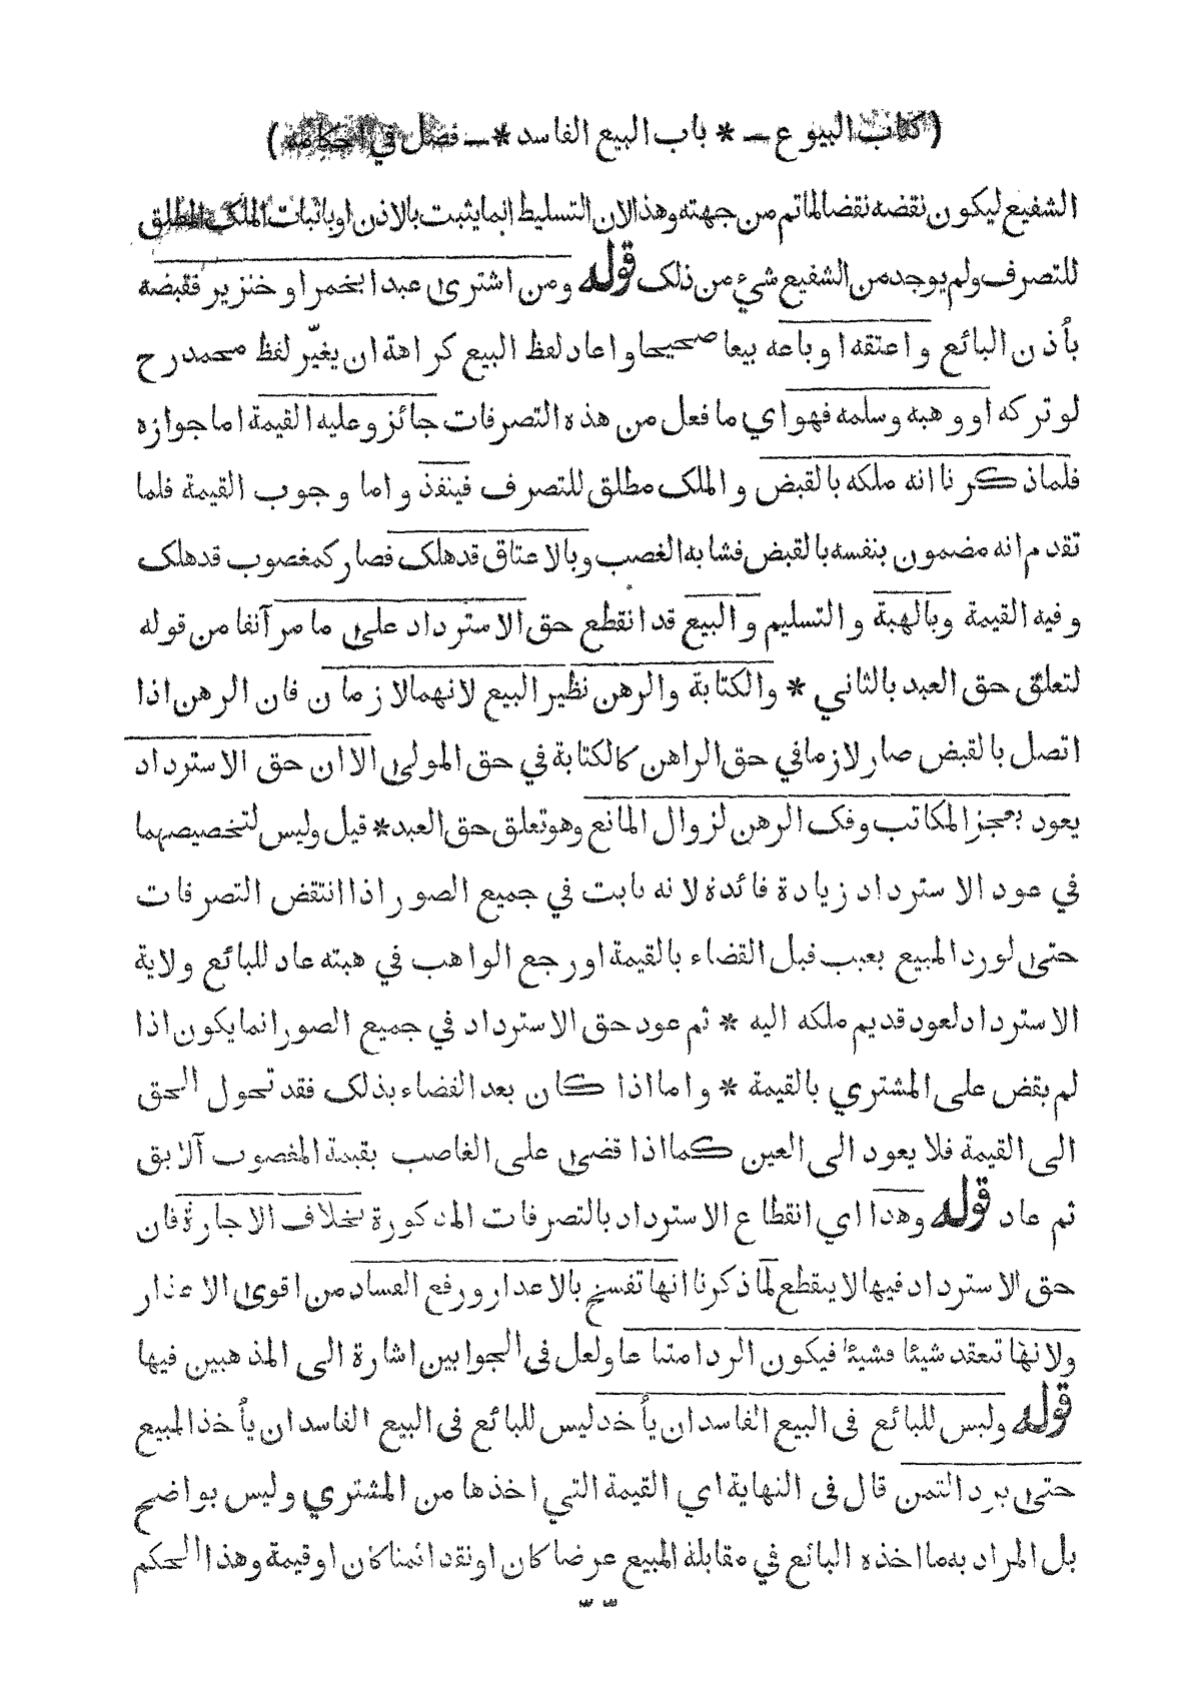 (كتاب البيوع ـ * باب البيع الفاسد * ـ فصل في احكامه)
الشفيع ليكون نقضه نقضا لما تم من جهته وهذا لان التسليط انما يثبت بالاذن او باثبات الملك المطلق
للتصرف ولم يوجد من الشفيع شيء من ذلك قوله ومن اشترى عبدا بخمر او خنزير فقبضه
بأذن البائع واعتقه او باعه بيعا صحيحا و اعاد لفظ البيع كراهة ان يغيّر لفظ محمد رح
لو تركه او وهبه وسلمه فهو اي ما فعل من هذه التصرفات جائز وعليه القيمة اما جوازه
فلما ذكرنا انه ملكه بالقبض والملك مطلق للتصرف فينفذ واما وجوب القيمة فلما
تقدم انه مضمون بنفسه بالقبض فشابه الغصب وبالاعتاق قد هلك فصار كمغصوب قد هلك
وفيه القيمة وبالهبة والتسليم والبيع قد انقطع حق الاسترداد على ما مر آنفا من قوله
لتعلق حق العبد بالثاني * والكتابة والرهن نظير البيع لانهما لازمان فان الرهن اذا
اتصل بالقبض صار لازما في حق الراهن كالكتابة في حق المولى الا ان حق الاسترداد
يعود بعجز المكاتب وفك الرهن لزوال المانع وهو تعلق حق العبد * قيل وليس لتخصيصهما
في عود الاسترداد زيادة فائدة لانه ثابت في جميع الصور اذا انتقض التصرفات
حتى لو رد المبيع بعيب قبل القضاء بالقيمة او رجع الواهب في هبته عاد للبائع ولاية
الاسترداد لعود قديم ملكه اليه * ثم عود حق الاسترداد في جميع الصور انما يكون اذا
لم يقض على المشتري بالقيمة * واما اذا كان بعد القضاء بذلك فقد تحول الحق
الى القيمة فلا يعود الى العين كما اذا قضى على الغاصب بقيمة المغصوب الآبق
ثم عاد قوله وهذا اي انقطاع الاسترداد بالتصرفات المذكورة بخلاف الاجارة فان
حق الاسترداد فيها لا ينقطع لما ذكرنا انها تفسخ بالاعذار ورفع الفساد من اقوى الاعذار
ولانها تنعقد شيئا فشيئا فيكون الرد امتناعا ولعل في الجوابين اشارة الى المذهبين فيها
قوله وليس للبائع في البيع الفاسد ان يأخذ ليس للبائع في البيع الفاسد ان يأخذ المبيع
حتى يرد الثمن قال في النهاية اي القيمة التي اخذها من المشتري وليس بواضح
بل المراد به ما اخذه البائع في مقابلة المبيع عرضا كان او نقدا ثمنا كان او قيمة وهذا الحكم